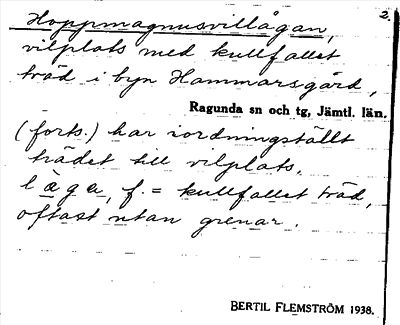 2.
Hoppmagnusvillågan,
vilplats med kullfallet
träd i byn Hammarsgård,
Ragunda sn och tg, Jämtl. län.
(forts.) har iordningställt
trädet till vilplats.
låga, f. = kullfallet träd,
oftast utan grenar.
BERTIL FLEMSTRÖM 1938.